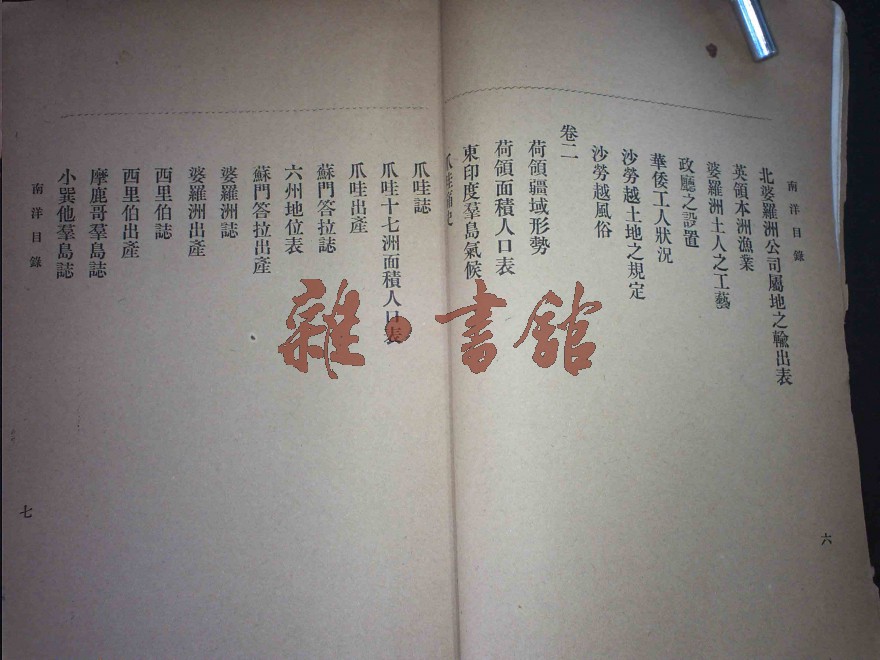 南洋目錄
北婆羅洲公司屬地之輸出表
英領本洲漁業
婆羅洲土人之工藝
政廳之設置
華倭工人狀況
沙勞越土地之規定
沙勞越風俗
卷二
荷領疆域形勢
荷領面積人口表
東印度羣島氣候
爪哇 史
六
爪哇誌
爪哇十七洲面積人口表
爪哇出產
蘇門答拉誌
六州地位表
蘇門答拉出產
婆羅洲誌
婆羅洲出產
西里伯誌
西里伯出產
摩鹿哥羣島誌
小巽他羣島誌
南洋目錄
七
雜·書館